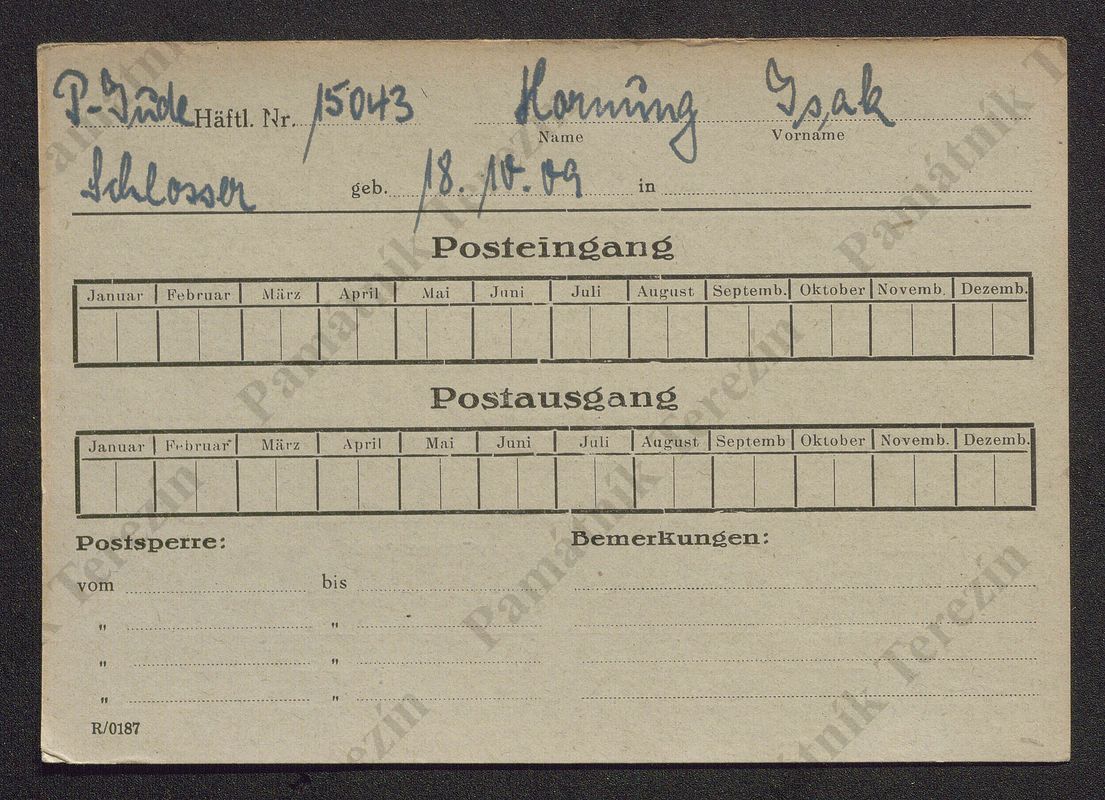 P-Jude Häftl. Nr. 15043 Hornung Isak
Name Vorname
Schlosser geb. 18. 10. 09 in
Posteingang
Januar Februar März April Mai Juni Juli August Septemb. Oktober Novemb. Dezemb.
Postausgang
Januar Februar März April Mai Juni Juli August Septemb Oktober Novemb. Dezemb.
Postsperre: Bemerkungen:
vom bis
" "
" "
" "
R/0187
Památník Terezín